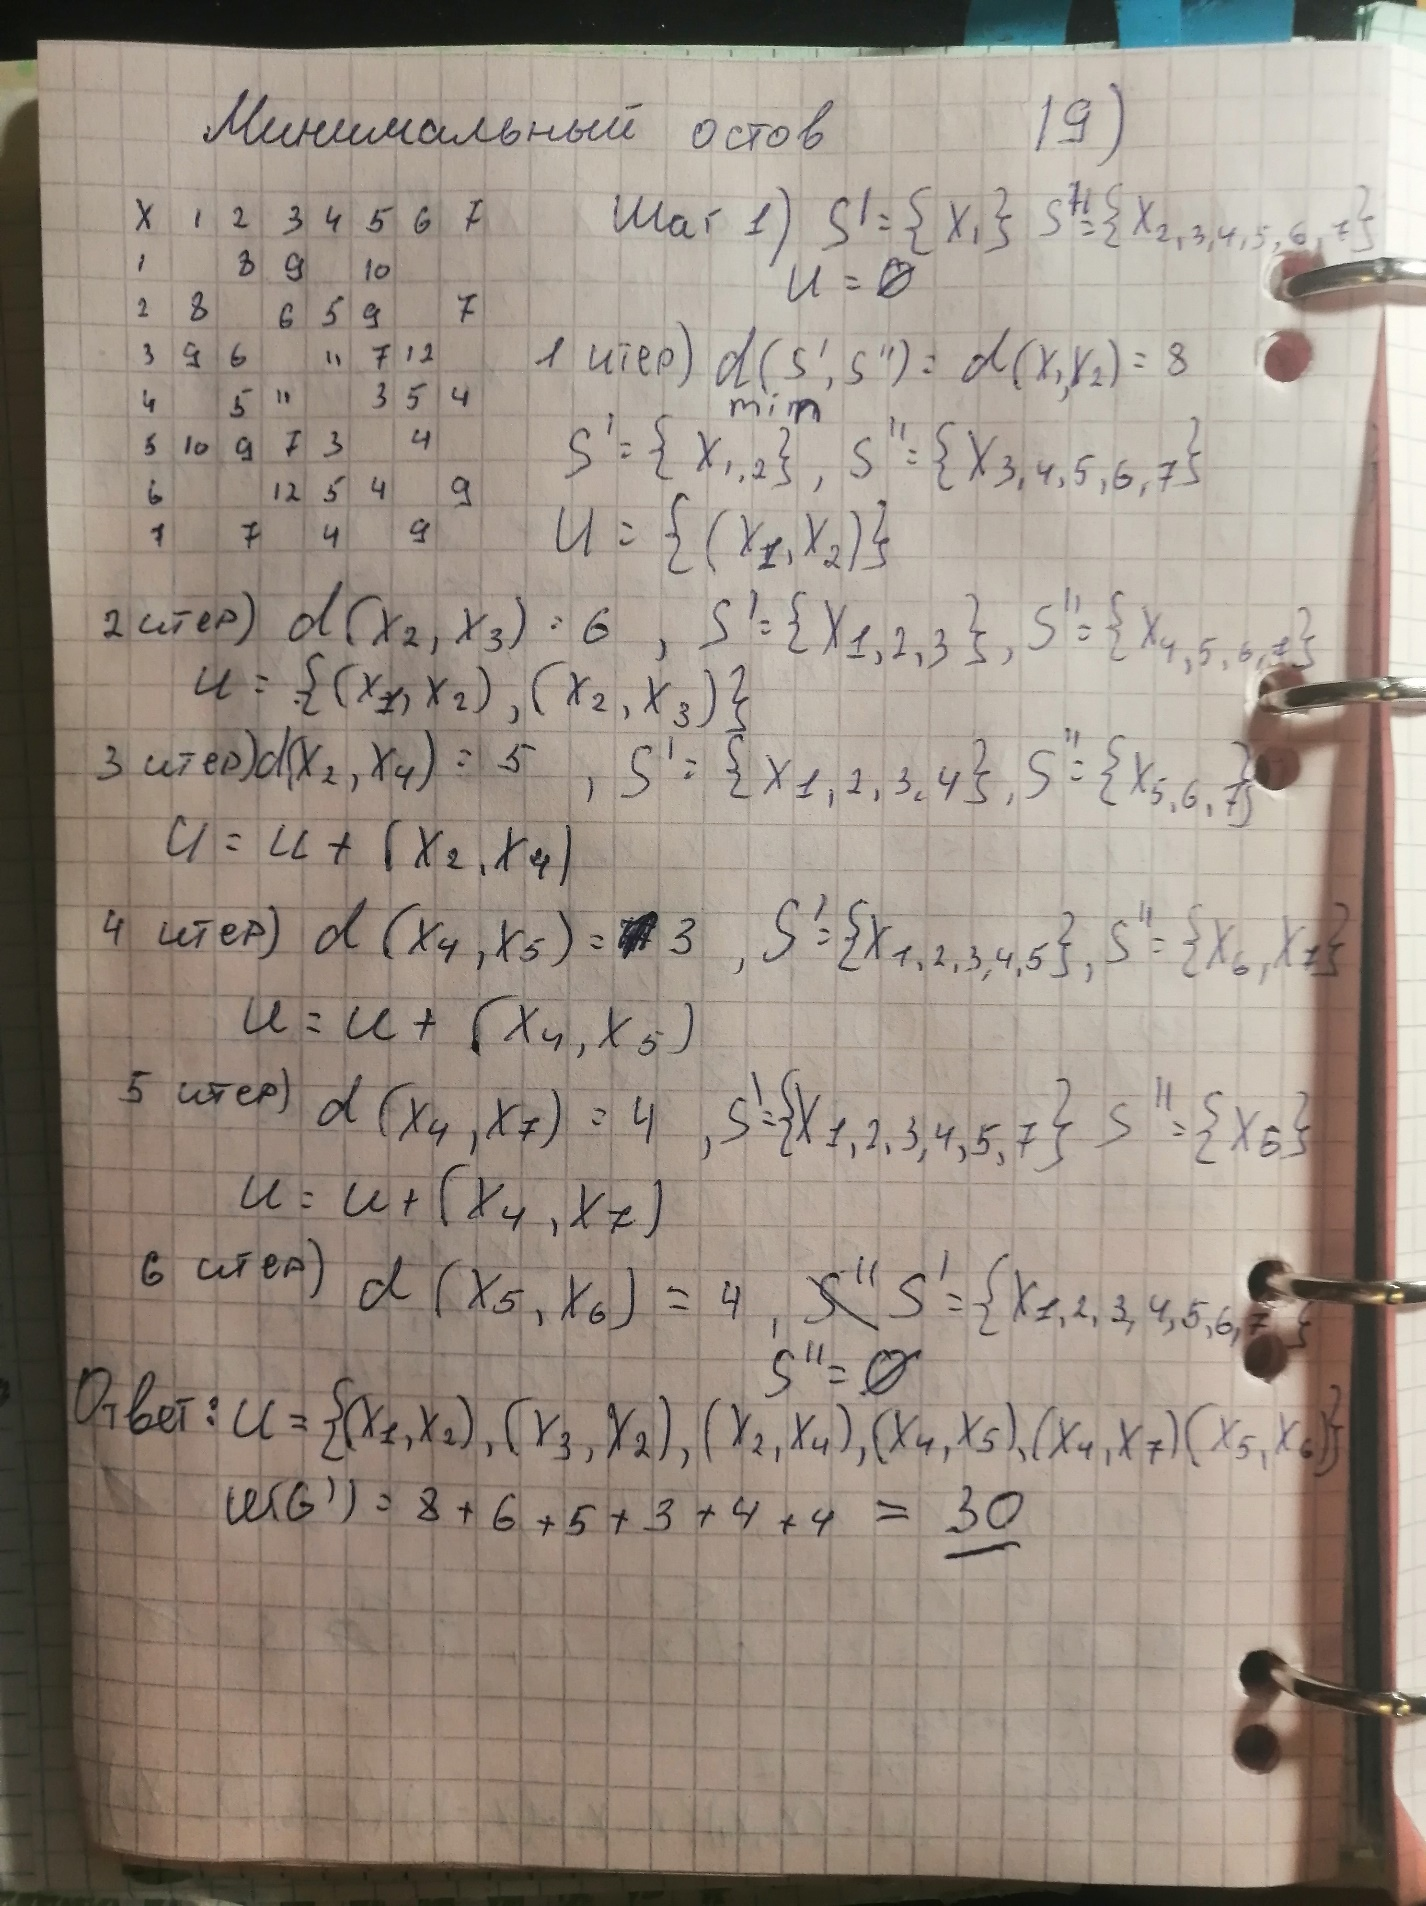 Минимальный остов 19)
X 1 2 3 4 5 6 7
1 8 9 10
2 8 6 5 9 7
3 9 6 11 7 12
4 5 11 3 5 4
5 10 9 7 3 4
6 12 5 4 9
7 7 4 9
Шаг 1) S' = {X₁} S'' = {X₂,₃,₄,₅,₆,₇}
U = ∅
1 итер) d(S', S'') = d(X₁, X₂) = 8
min
S' = {X₁,₂}, S'' = {X₃,₄,₅,₆,₇}
U = {(X₁, X₂)}
2 итер) d(X₂, X₃) = 6, S' = {X₁,₂,₃}, S'' = {X₄,₅,₆,₇}
U = {(X₁, X₂), (X₂, X₃)}
3 итер) d(X₂, X₄) = 5, S' = {X₁,₂,₃,₄}, S'' = {X₅,₆,₇}
U = U + (X₂, X₄)
4 итер) d(X₄, X₅) = 3, S' = {X₁,₂,₃,₄,₅}, S'' = {X₆, X₇}
U = U + (X₄, X₅)
5 итер) d(X₄, X₇) = 4, S' = {X₁,₂,₃,₄,₅,₇} S'' = {X₆}
U = U + (X₄, X₇)
6 итер) d(X₅, X₆) = 4, S' = {X₁,₂,₃,₄,₅,₆,₇}
S'' = ∅
Ответ: U = {(X₁, X₂), (X₃, X₂), (X₂, X₄), (X₄, X₅), (X₄, X₇) (X₅, X₆)}
(G') = 8 + 6 + 5 + 3 + 4 + 4 = 30